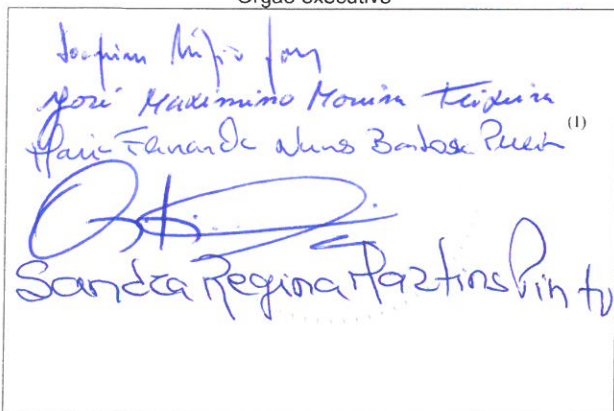 Órgão executivo
Joaquim
José Maximino Moreira Teixeira
Maria Fernanda Nunes Barbosa
(1)
Sandra Regina Martins Pinto